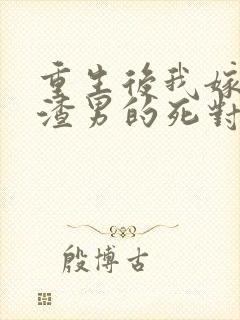 重生後我嫁
渣男的死對
殷博古